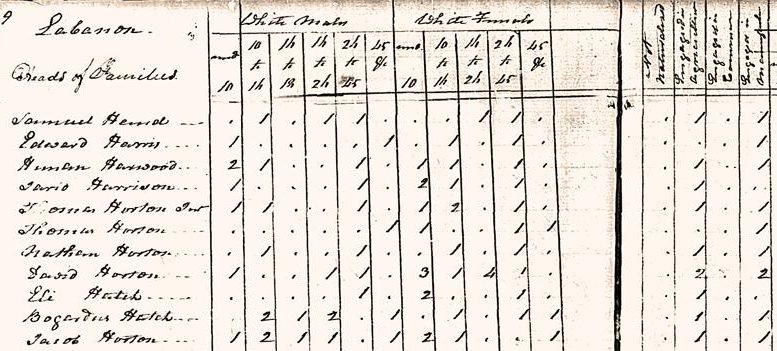 9 Lebanon. White Males White Females
und 10 16 16 26 45 und 10 16 26 45 Not Naturalized Engaged in Agriculture Engaged in Commerce Engaged in
to to to to &c to to to &c
Heads of Families 10 16 18 26 45 10 16 26 45
Samuel . 1 . 1 1 . . . 1 1 . . 1 . 1
Edward Harris 1 . . . . 1 . 1 . 1 . . 1 . 1
Harwood 2 1 . . 1 . 1 1 . 1 . . 1 . 1
Harrison 1 . . . 1 . 2 . . 1 . . 1 . 1
Thomas Horton Jnr 1 1 . . 1 . 1 2 . 1 . . 1 . 1
Thomas Horton . . . . . 1 1 . . 1 1 . 1 . 1
Nathan Horton . 1 . . 1 . . 1 . 1 . . 1 . 1
David Horton 1 . . 1 1 . 3 1 4 1 . . 2 . 2
Eli Hatch . . . . 1 . 2 . . 1 . . 1 . 1
Bogardus Hatch . 2 1 2 . 1 . . 1 1 1 . 1 . 1
Jacob Horton 1 2 1 1 . 1 2 1 . 1 . . 1 . 1